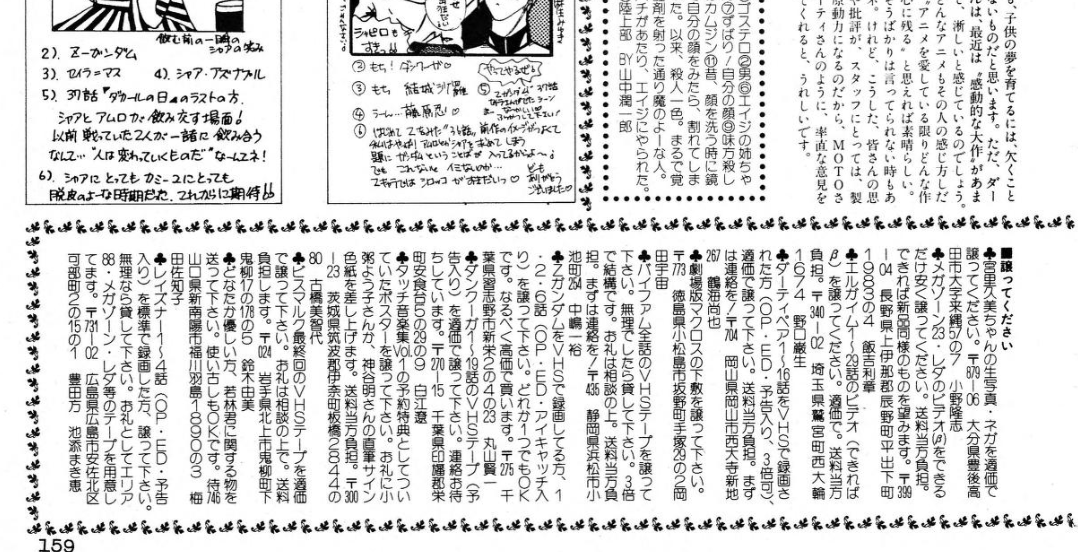 も、子供の夢を育てるには、欠くこと
ないものだと思います。ただ、ダー
んは、最近は〝感動的な大作〟があま
て、淋しいと感じているのでしょう。
どんなアニメもその人の感じ方しだ
〝アニメを愛している限りどんな作
心に残る〟と思えれば素晴らしい。
そうばかりは言ってられない時もあ
ネ。けれど、こうした、皆さんの思
や批評が、スタッフにとっては、製
原動力になるのだから、MOTOさ
ーティさんのように、率直な意見を
てくれると、うれしいです。
ゴステロ②男⑥エイジの姉ちゃ
⑦ずばり/自分の顔⑨味方殺し
カムジン⑪昔、顔を洗う時に鏡
自分の顔をみたら、割れてしま
た。以来、殺人一色。まるで覚
剤を射った通り魔のよーな人。
チがあたり、エイジにやられた。
陸上部 BY山中潤一郎
シャピロも
すきっ
② もち! ダンクーガ
やぁってやるぜ!
③ もち、結城
④ うーん…藤原忍
飲む前の一瞬の
シャアの笑み
2). Zーガンダム
3). セイラ=マス 4). シャア・アズナブル
5). 37話『ダカールの日』のラストの方.
シャアとアムロが飲み交す場面
以前戦っていた2人が一諸に飲み合う
なんて…"人は変わっていくものだ"なーんてネ!
6). シャアにとってもカミーユにとっても
脱皮のよーな時期だネ. これからに期待
■譲ってください
♣宮里久美ちゃんの生写真・ネガを適価で
譲ってください。〒879-06 大分県豊後高
田市大字来縄の7 小野隆志
♣メガゾーン23・レダのビデオ(β)をできる
だけ安く譲ってください。送料当方負担。
できれば新品同様のものを望みます。〒399
-04 長野県上伊那郡辰野町平出下町
1983の4 飯吉利章
♣エルガイム1～29話のビデオ(できれば
β)を譲ってください。適価で。送料当方
負担。〒340-02 埼玉県鷲宮町西大輪
1674 野口巌生
♣ダーティペア1～16話をVHSで録画さ
れた方(OP・ED・予告入り、3倍可)、
適価で譲って下さい。送料当方負担。まず
は連絡を/〒704 岡山県岡山市西大寺新地
267 鶴海尚也
♣劇場版マクロスの下敷を譲って下さい。
〒773 徳島県小松島市坂野町手塚29の2岡
田宇宙
♣バイファム全話のVHSテープを譲って
下さい。無理でしたら貸して下さい。3倍
で結構です。お礼は相談の上。送料当方負
担。まずは連絡を/〒435 静岡県浜松市小
池町254 中嶋一裕
♣ZガンダムをVHSで録画してる方、1
・2・6話(OP・ED・アイキャッチ入
り)を譲って下さい。どれか1つでもOK
です。なるべく高価で買います。〒275 千
葉県習志野市新栄2の4の23 丸山賢一
♣ダンクーガ1～19話のVHSテープ(予
告入り)を適価で譲って下さい。連絡お待
ちしています。〒270-15 千葉県印旛郡栄
町安食台5の29の9 白江遼
♣タッチ音楽集Vol.1の予約特典としてつい
ていたポスターを譲って下さい。お礼に小
粥よう子さんか、神谷明さんの直筆サイン
色紙を差し上げます。送料当方負担。〒300
-23 茨城県筑波郡伊奈町板橋2844の
80 古橋美智代
♣ビスマルク最終回のVHSテープを適価
で譲って下さい。お礼は相談の上で。送料
負担します。〒024 岩手県北上市鬼柳町下
鬼柳17の178の5 鈴木由美
♣どなたか優しい方、若林君に関する物を
送って下さい。使い古しもOKです。〒746
山口県新南陽市福川羽島1890の3 梅
田佐知子
♣レイズナー1～4話(OP・ED・予告
入り)を標準で録画した方、譲って下さい。
無理なら貸して下さい。お礼としてエリア
88・メガゾーン・レダ等のテープを用意し
てます。〒731-02 広島県広島市安佐北区
可部町2の15の1 豊田方 池添まき恵
159